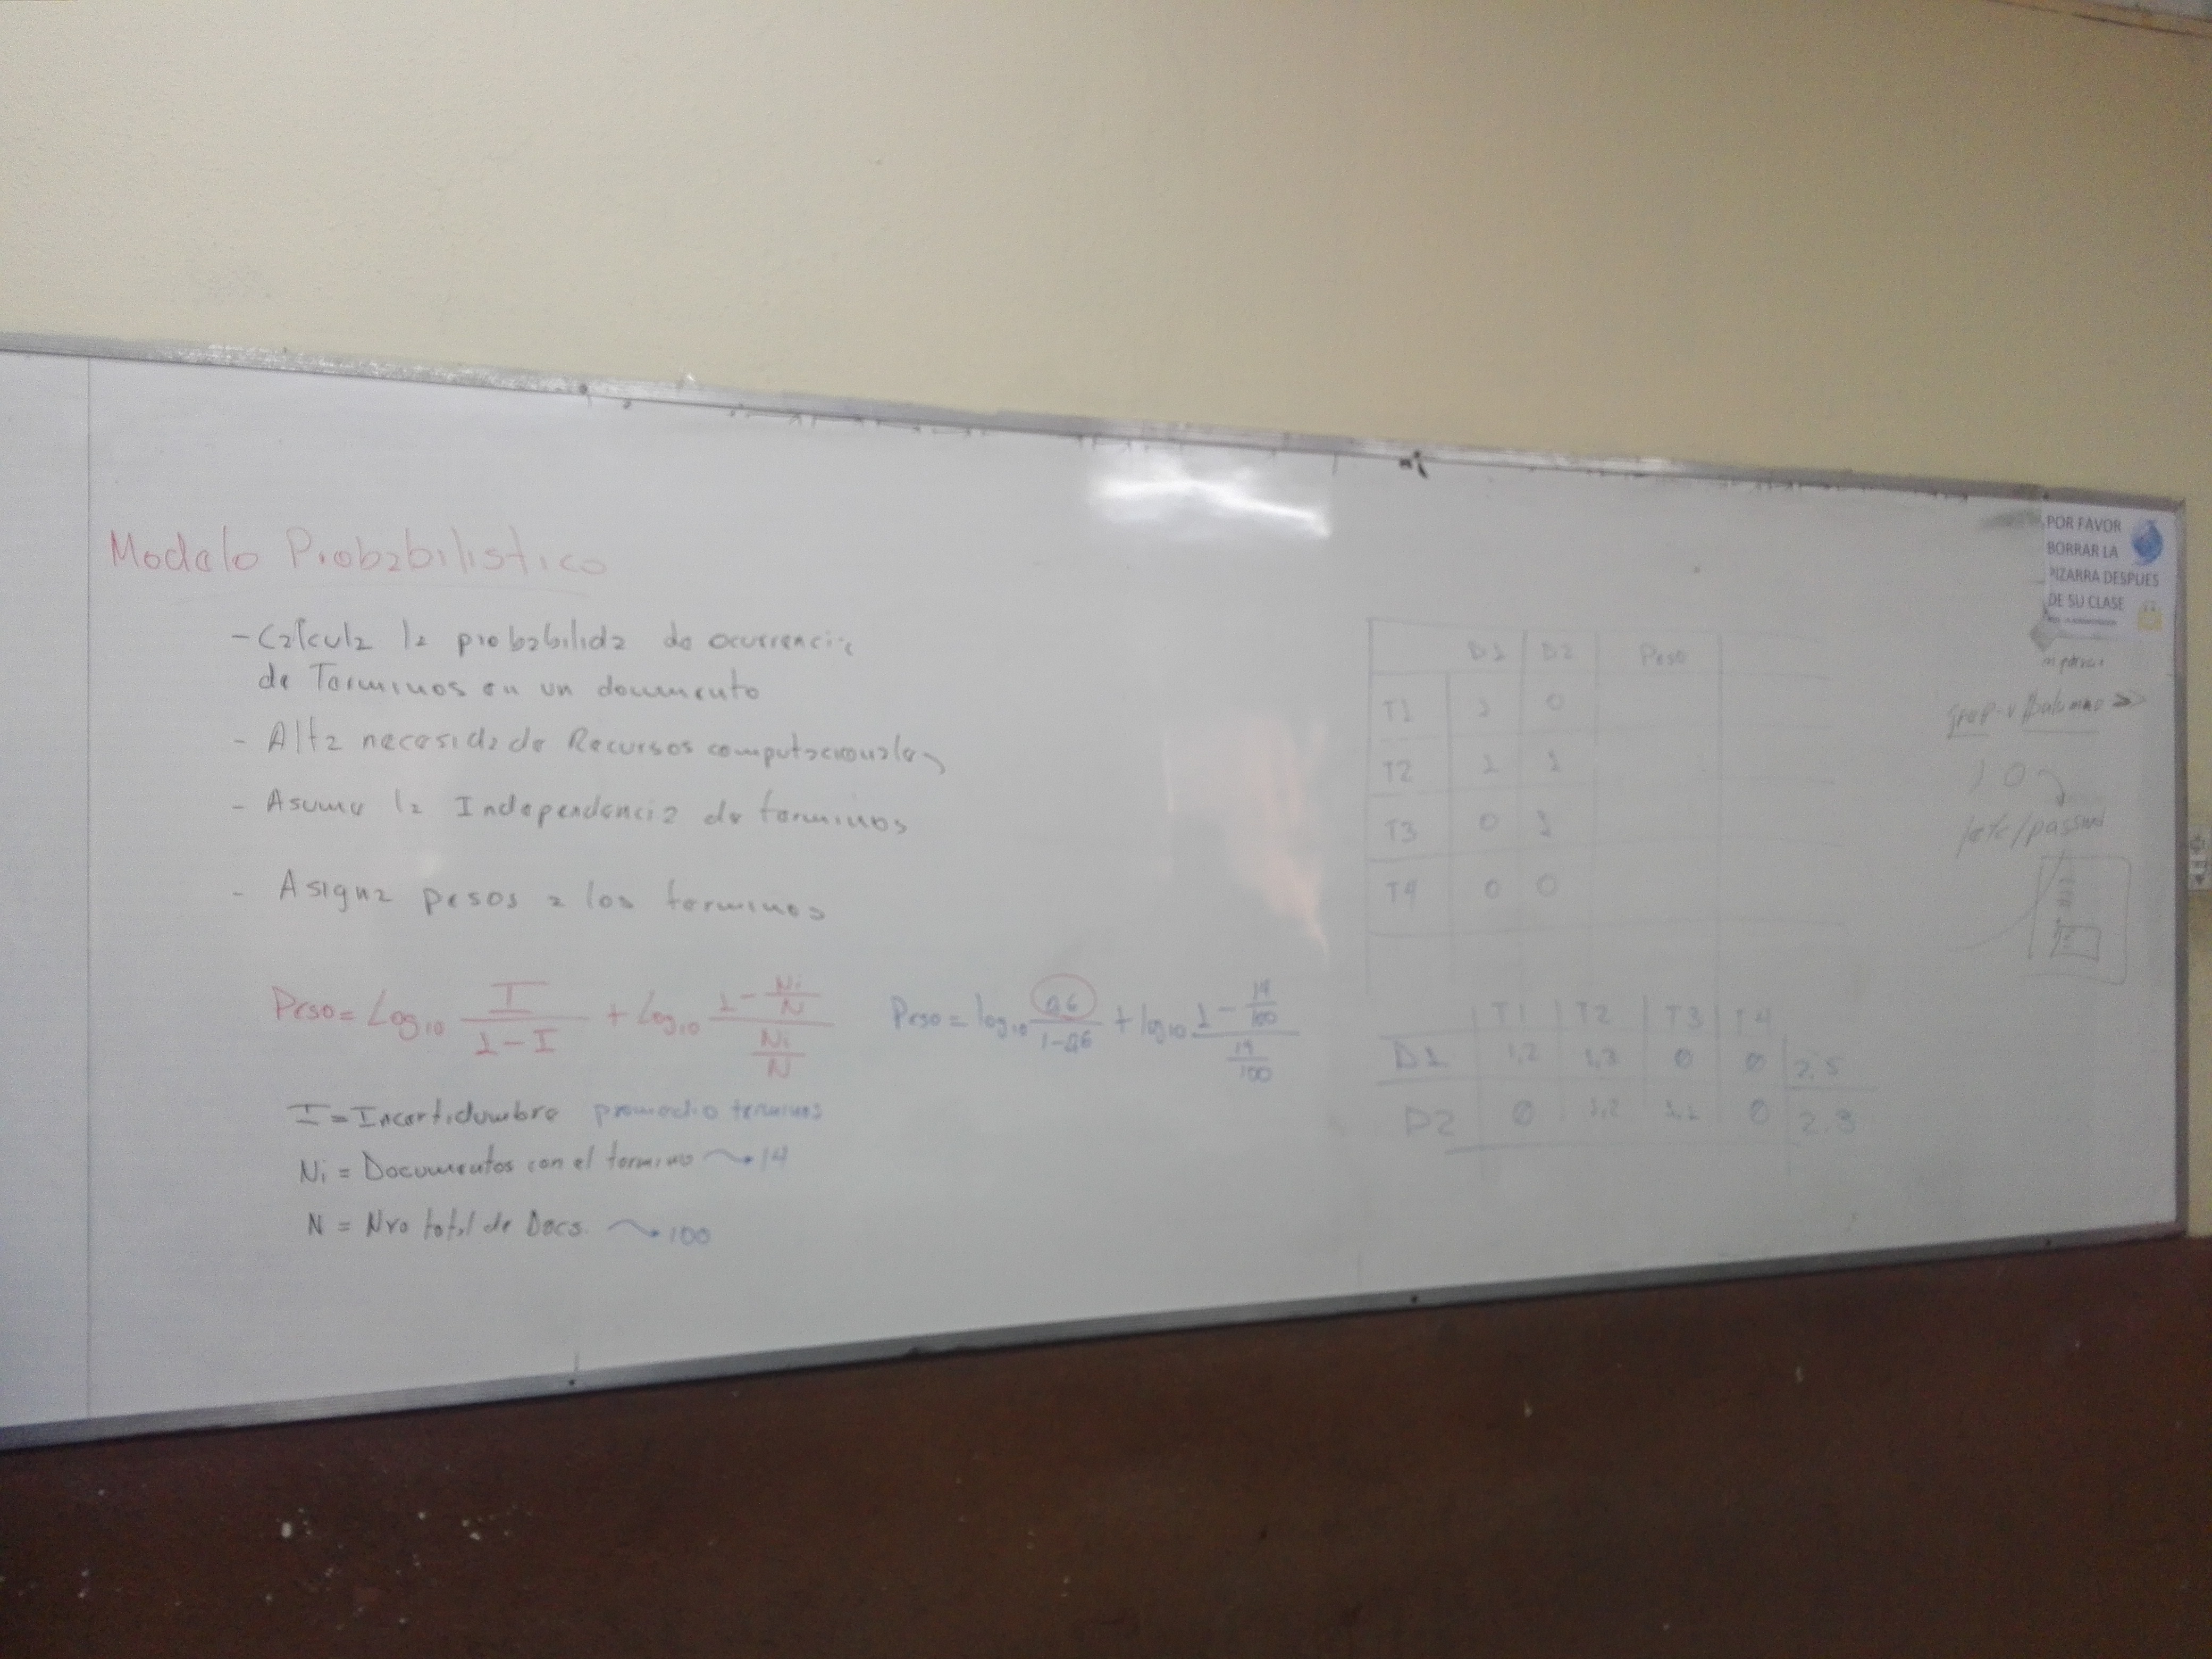 Modelo Probabilistico
- Calcula la probabilida de ocurrencia
de Terminos en un documento
- Alta necesida de Recursos computacionales
- Asume la Independencia de terminos
- Asigna pesos a los terminos
Peso = Log10 I / 1-I + Log10 (1 - Ni/N) / (Ni/N)
Peso = log10 0.6 / 1-0.6 + log10 (1 - 14/100) / (14/100)
I = Incertidumbre promedio terminos
Ni = Documentos con el termino 14
N = Nro total de Docs. 100
D1 D2 Peso
T1 1 0
T2 1 1
T3 0 1
T4 0 0
T1 T2 T3 T4
D1 1,2 1,3 0 0 2.5
D2 0 1,2 1,1 0 2.3
POR FAVOR
BORRAR LA
PIZARRA DESPUES
DE SU CLASE
/etc/passwd